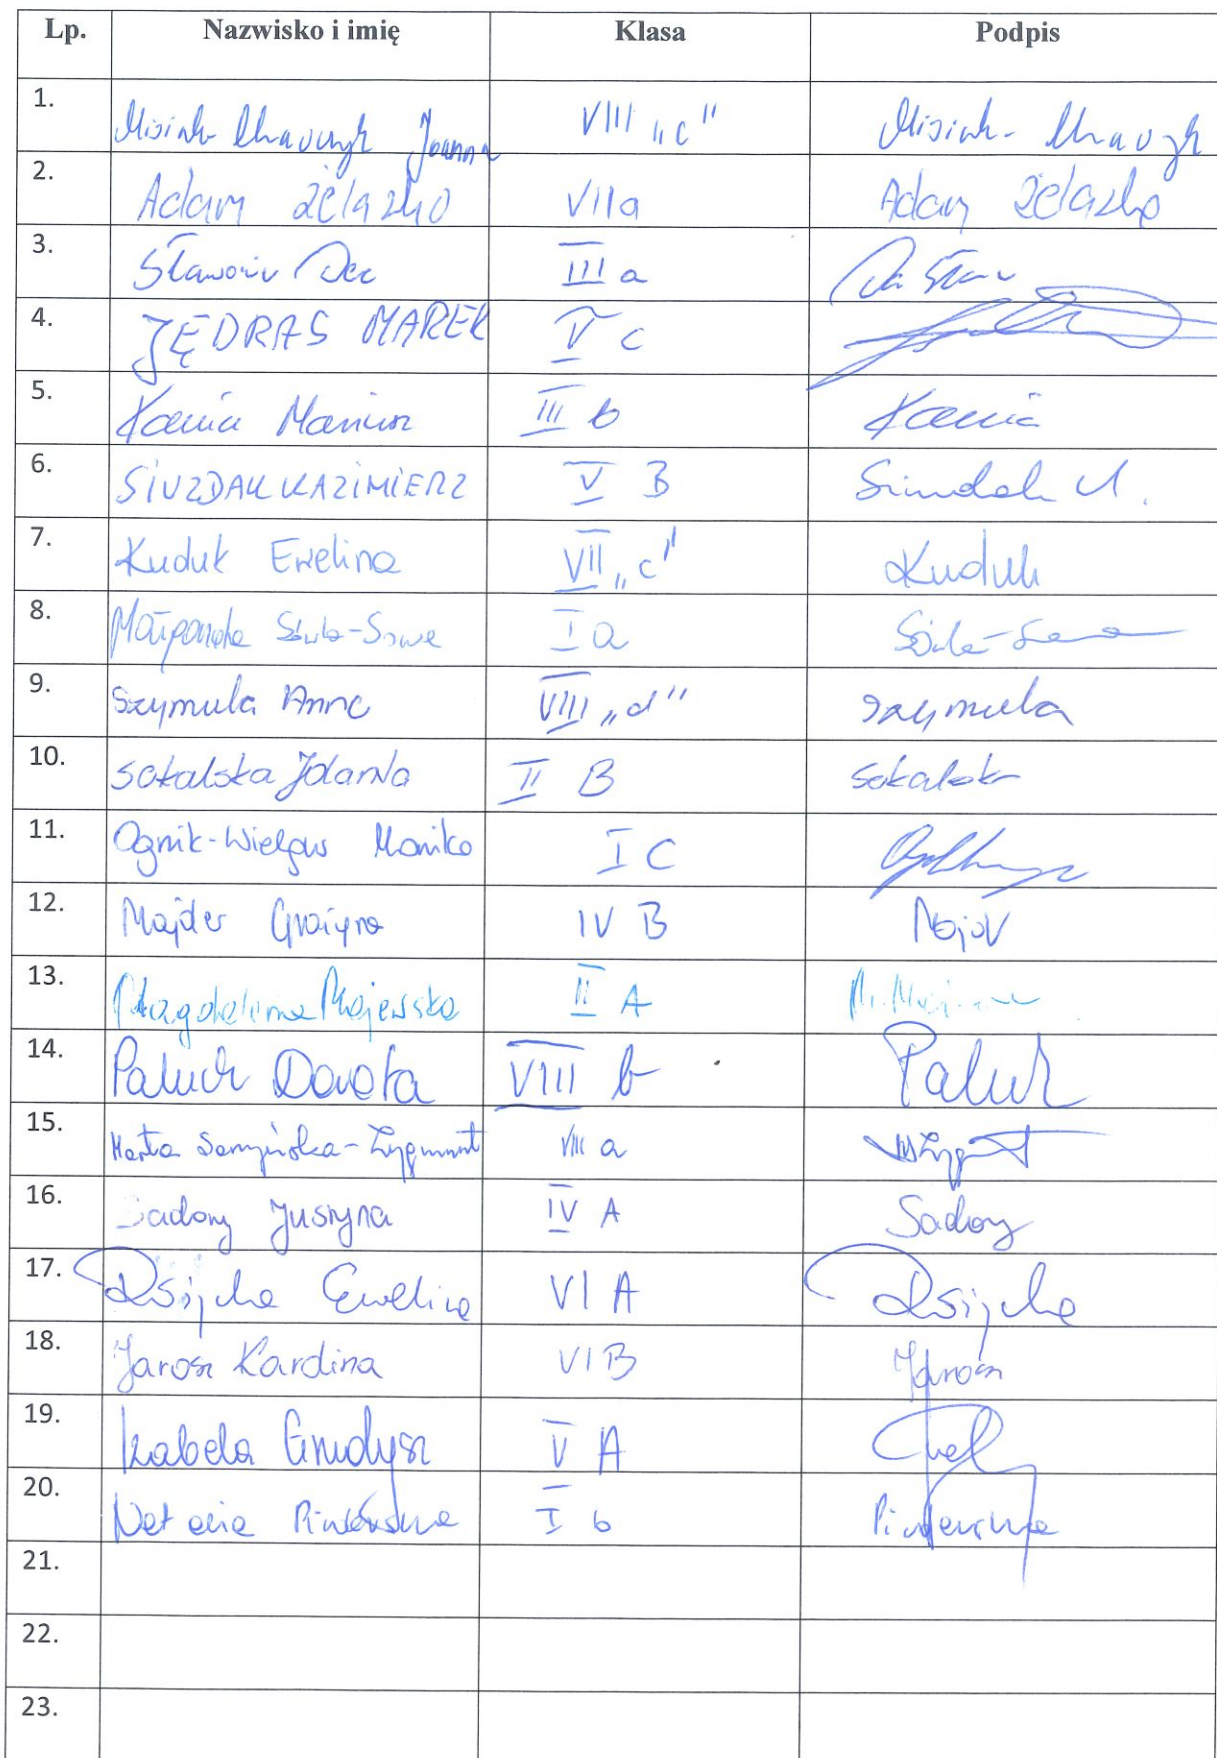 Lp. Nazwisko i imię Klasa Podpis
1. Misiak- Joanna VIII „c" Misiak-
2. Adam Żelazko VIIa Adam Żelazko
3. Sławomir Dec III a
4. JĘDRAS MAREK V c
5. Kania Mariusz III b Kania
6. SIUZDAK KAZIMIERZ V B Siuzdak K.
7. Kuduk Ewelina VII „c" Kuduk
8. Małgorzata -Sowa I a
9. Szymula Anna VIII „d" Szymula
10. Sokalska Jolanta II B Sokalska
11. Ognik-Wielgus Monika I C
12. Majder Grażyna IV B
13. Magdalena Majewska II A
14. Paluch Dorota VIII b Paluch
15. Marta -Zygmunt VIII a
16. Sadowy Justyna IV A Sadowy
17. Ewelina VI A
18. Jarosz Karolina VI B Jarosz
19. Izabela Grudysz V A
20. Natalia I b
21.
22.
23.